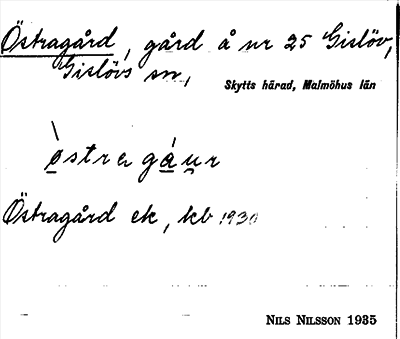 Östragård, gård å nr 25 Gislöv,
Gislövs sn,
Skytts härad, Malmöhus län
òstragáu̯r
Östragård ek, kb 1930
NILS NILSSON 1935